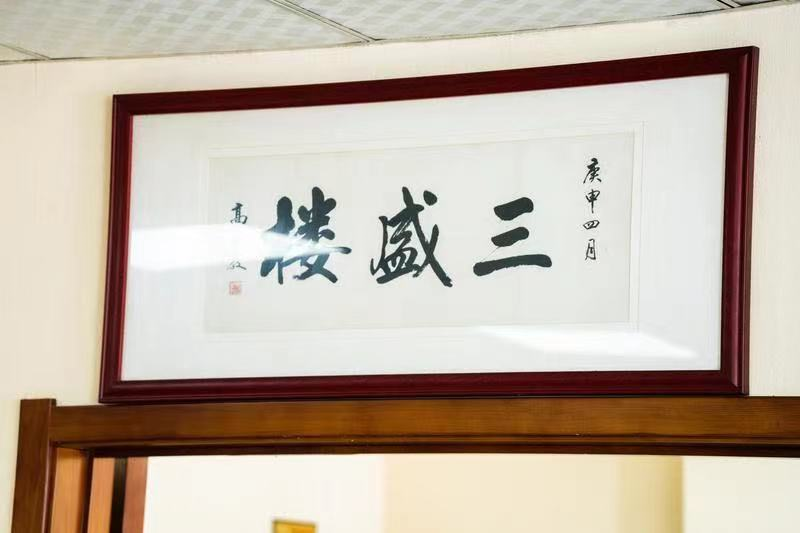 庚申四月
三盛楼
高